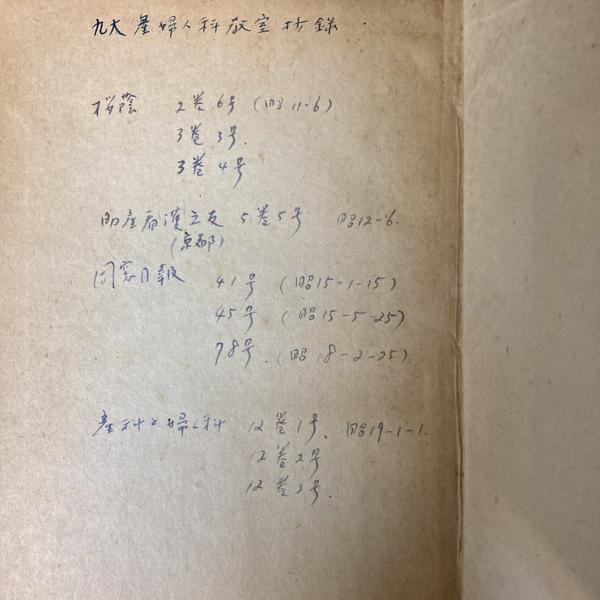 九大産婦人科教室抄録
桜蔭 2巻6号(昭11-6)
3巻3号.
3巻4号
助産看護之友 5巻5号 昭12-6.
(京都)
同窓月報 41号 (昭15-1-15)
45号 (昭15-5-25)
78号.(昭18-2-25)
産科と婦人科 12巻1号、昭19-1-1.
12巻2号
12巻3号.